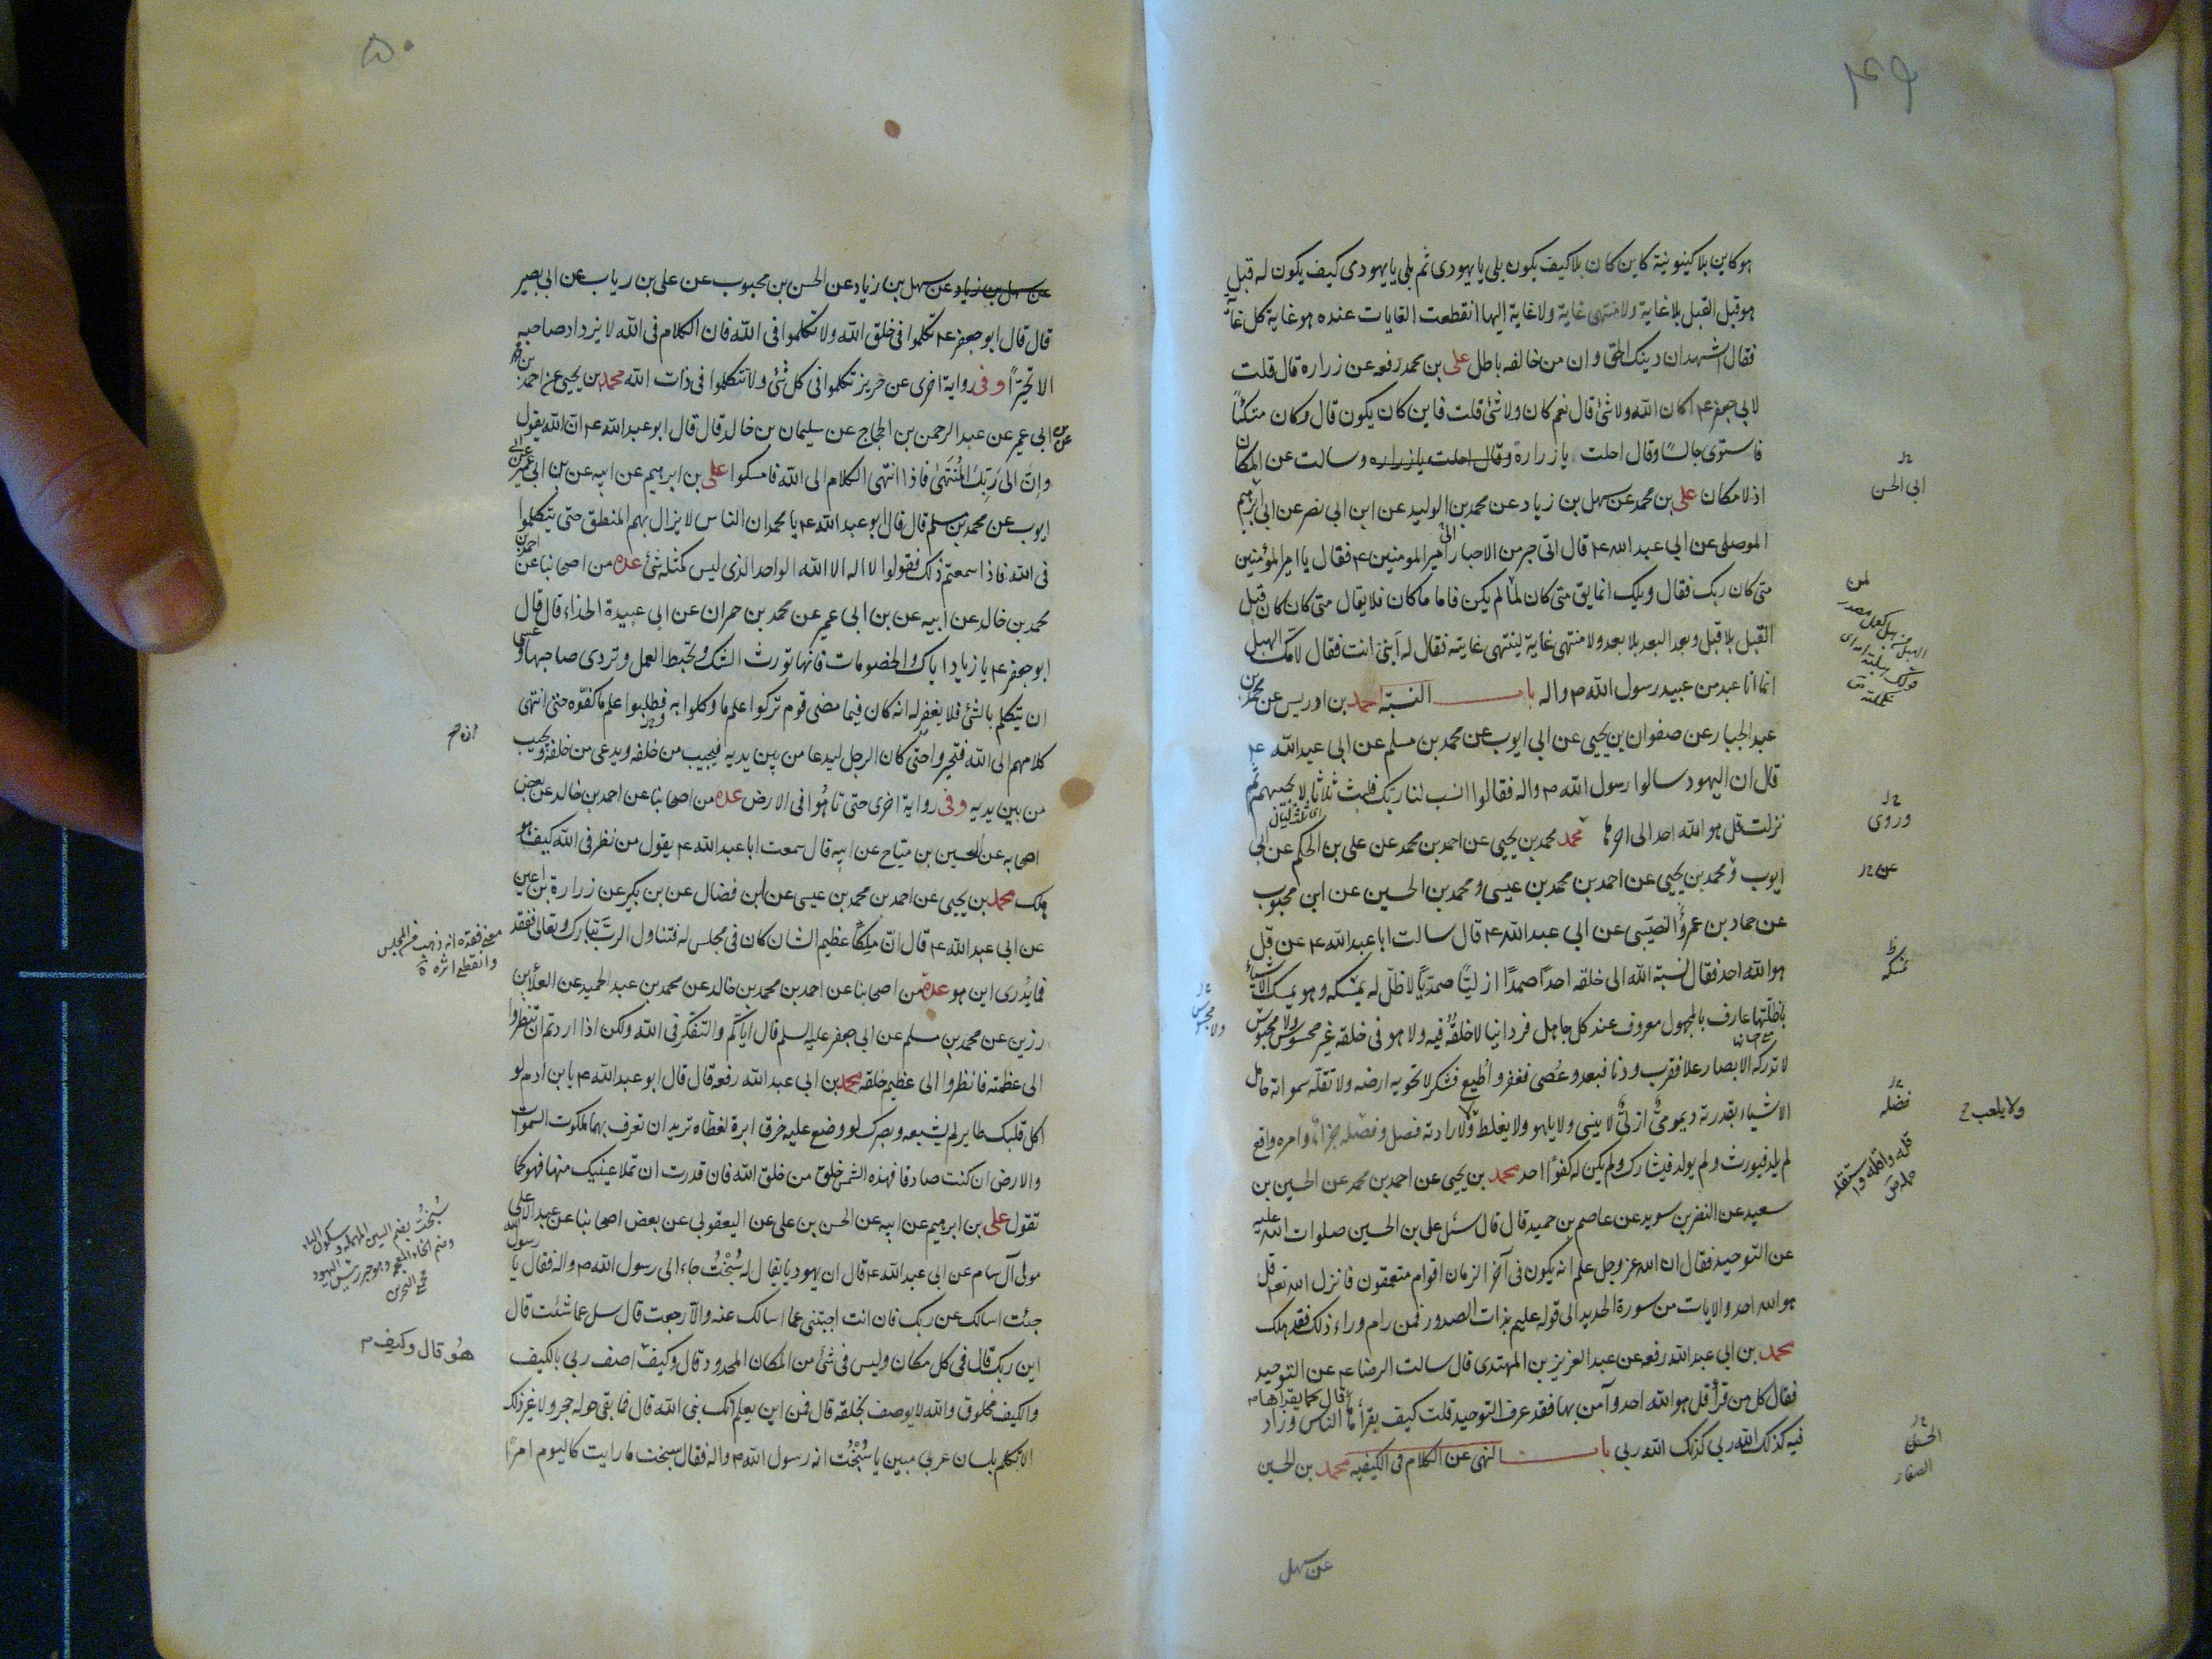 ۴۹
هو كاين بلا كينونية كاين كان بلا كيف يكون بلى يا يهودى ثم بلى يا يهودى كيف يكون له قبل
هو قبل القبل بلا غاية ولا منتهى غاية ولا غاية اليها انقطعت الغايات عنده هو غاية كل غاية
فقال اشهد ان دينك الحق وان من خالفه باطل على بن محمد رفعه عن زراره قال قلت
لابى جعفر ع اكان الله ولا شئ قال نعم كان ولا شئ قلت فاين كان يكون قال وكان متكئاً
فاستوى جالسًا وقال احلت يا زرارة وقال احلت يا زراره وسالت عن المكان
اذ لا مكان على بن محمد عن سهل بن زياد عن محمد بن الوليد عن ابن ابى نصر عن ابى ابرهيم
الموصلى عن ابى عبد الله ع قال اتى حبر من الاحبار امير المومنين ع فقال يا امير المؤمنين
متى كان ربك فقال ويلك انما يق متى كان لما لم يكن فاما ما كان فلا يقال متى كان كان قبل
القبل بلا قبل وبعد البعد بلا بعد ولا منتهى غاية لينتهى غايته فقال له أنبى انت فقال لامك الهبل
انما انا عبد من عبيد رسول الله ص واله باب النسبة احمد بن ادريس عن محمد بن
عبد الجبار عن صفوان بن يحيى عن ابى ايوب عن محمد بن مسلم عن ابى عبد الله ع
قال ان اليهود سالوا رسول الله ص واله فقالوا انسب لنا ربك فلبث ثلاثا لا يجيبهم ثم
نزلت قل هو الله احد الى اخرها محمد محمد بن يحيى عن احمد بن محمد عن على بن الحكم عن ابى
ايوب و محمد بن يحيى عن احمد بن محمد بن عيسى و محمد بن الحسين عن ابن محبوب
عن حماد بن عمرو النصيبى عن ابى عبد الله ع قال سالت ابا عبد الله ع عن قل
هو الله احد فقال نسبة الله الى خلقه احدًا صمدًا ازليًا صمديًا لا ظل له يمسكه وهو يمسك الاشياء
باظلتها عارف بالمجهول معروف عند كل جاهل فردانيا لا خلقه فيه ولا هو فى خلقه غير محسوس ولا مجسوس
لا تدركه الابصار علا فقرب ودنا فبعد وعُصى فغفر واُطيع فشكر لا تحويه ارضه ولا تقله سمواته حامل
الاشياء بقدرته ديمومىٌّ ازلىٌّ لا ينسى ولا يلهو ولا يغلط ولا لارادته فصل وفضله جزاء وامره واقع
لم يلد فيورث ولم يولد فيشارك ولم يكن له كفوًا احد محمد بن يحيى عن احمد بن محمد عن الحسين بن
سعيد عن النضر بن سويد عن عاصم بن حميد قال قال سئل على بن الحسين صلوات الله عليه
عن التوحيد فقال ان الله عز وجل علم انه يكون فى آخر الزمان اقوام متعمقون فانزل الله تعه قل
هو الله احد والايات من سورة الحديد الى قوله عليم بذات الصدور فمن رام وراء ذلك فقد هلك
محمد بن ابى عبد الله رفعه عن عبد العزيز بن المهتدى قال سالت الرضا ع عن التوحيد
فقال كل من قرأ قل هو الله احد وآمن بها فقد عرف التوحيد قلت كيف يقرأها قال كما يقرأها الناس وزاد
فيه كذلك الله ربى كذلك الله ربى باب النهى عن الكلام فى الكيفية محمد بن الحسن
عن سهل
ابى الحسن
لمن
وروى
عن
يمسكه
فضله
ولا يلعب
الحسن
الصفار
۵۰
عن سهل بن زياد عن سهل بن زياد عن الحسن بن محبوب عن على بن رياب عن ابى بصير
قال قال ابو جعفر ع تكلموا فى خلق الله ولا تكلموا فى الله فان الكلام فى الله لا يزداد صاحبه
الا تحيّرًا وفى رواية اخرى عن حريز تكلموا فى كل شئ ولا تتكلموا فى ذات الله محمد بن يحيى عن احمد بن محمد
عن بن ابى عمير عن عبد الرحمن بن الحجاج عن سليمان بن خالد قال قال ابو عبد الله ع ان الله يقول
وانّ الى ربك المُنتَهىٰ فاذا انتهى الكلام الى الله فامسكوا على بن ابرهيم عن ابيه عن بن ابى عمير عن ابى
ايوب عن محمد بن مسلم قال قال ابو عبد الله ع يا محمد ان الناس لا يزال بهم المنطق حتى يتكلموا
فى الله فاذا سمعتم ذلك فقولوا لا اله الا الله الواحد الذى ليس كمثله شئ عده من اصحابنا عن احمد بن
محمد بن خالد عن ابيه عن بن ابى عمير عن محمد بن حمران عن ابى عبيدة الحذاء قال قال
ابو جعفر ع يا زياد اياك والخصومات فانها تورث الشك وتحبط العمل وتردى صاحبها وعسى
ان يتكلم بالشئ فلا يغفر له انه كان فيما مضى قوم تركوا علم ما وكلوا به وطلبوا علم ما كفوه حتى انتهى
كلامهم الى الله فتحيروا حتى كان الرجل ليدعا من بين يديه فيجيب من خلفه ويدعى من خلفه ويجيب
من بين يديه وفى رواية اخرى حتى تاهُوا فى الارض عده من اصحابنا عن احمد بن خالد عن بعض
اصحابه عن الحسين بن مياح عن ابيه قال سمعت ابا عبد الله ع يقول من نظر فى الله كيف هو
هلك محمد بن يحيى عن احمد بن محمد بن عيسى عن ابن فضال عن بن بكير عن زرارة بن اعين
عن ابى عبد الله ع قال انّ ملِكًا عظيم الشان كان فى مجلس له فتناول الربّ تبارك وتعالى ففقد
فما يُدرى اين هو عدة من اصحابنا عن احمد بن محمد بن خالد عن محمد بن عبد الحميد عن العلا بن
رزين عن محمد بن مسلم عن ابى جعفر عليه السلم قال اياكم والتفكر فى الله ولكن اذا اردتم ان تنظروا
الى عظمته فانظروا الى عظيم خلقه محمد بن ابى عبد الله رفعه قال قال ابو عبد الله ع يا بن ادم لو
اكل قلبك طاير لم يشبعه وبصرك لو وضع عليه خرق ابرة لغطاه تريد ان تعرف بهما ملكوت السموات
والارض ان كنت صادقا فهذه الشمس خلق من خلق الله فان قدرت ان تملا عينيك منها فهو كما
تقول على بن ابرهيم عن ابيه عن الحسن بن على عن اليعقوبى عن بعض اصحابنا عن عبد الاعلى
مولى آل سام عن ابى عبد الله ع قال ان يهوديا يقال له سُبُخْتُ جاء الى رسول الله ص واله فقال يا رسول الله
جئت اسالك عن ربك فان انت اجبتنى عما اسالك عنه والا رجعت قال سل عما شئت قال
اين ربك قال فى كل مكان وليس فى شئ من المكان المحدود قال وكيف اصف ربى بالكيف
والكيف مخلوق والله لا يوصف بخلقه قال فمن اين يعلم انك نبى الله قال فما بقى حوله حجر ولا غير ذلك
الا تكلم بلسان عربى مبين يا سُبُخْتُ انه رسول الله ص واله فقال سبخت ما رايت كاليوم امرًا
معنى فقده انه ذهب من المجلس
وانقطع اثره
سُبُخْتُ بضم السين المهملة وسكون الباء
وضم الخاء المعجمه
هُو قال وكيف م